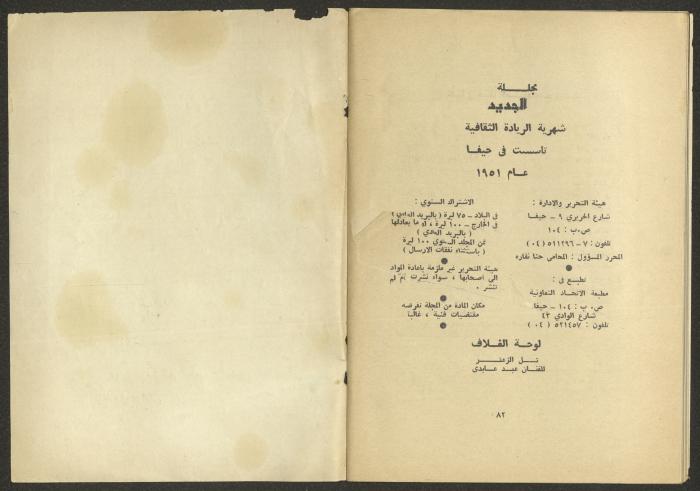 مجلة
الجديد
شهرية الريادة الثقافية
تاسست في حيفا
عام ١٩٥١
هيئة التحرير والادارة :
شارع الحريري ٩ - حيفا
ص.ب : ١٠٤
تلفون : ٧ - ٥١١٢٩٦ (٠٤)
المحرر المسؤول : المحامي حنا نقاره
تطبع في :
مطبعة الاتحاد التعاونية
ص. ب : ١٠٤ - حيفا
شارع الوادي ٤٣
تلفون : ٥٢١٤٥٧ (٠٤)
الاشتراك السنوي :
في البلاد - ٧٥ ليرة ( بالبريد العادي )
في الخارج - ١٠٠ ليرة ، او ما يعادلها
( بالبريد العادي )
ثمن المجلد السنوي ١٠٠ ليرة
( باستثناء نفقات الارسال )
هيئة التحرير غير ملزمة باعادة المواد
الى اصحابها ، سواء نشرت ام لم
تنشر .
مكان المادة من المجلة تفرضه
مقتضيات فنية ، غالبا
لوحة الغلاف
تل الزعتر
للفنان عبد عابدي
٨٢